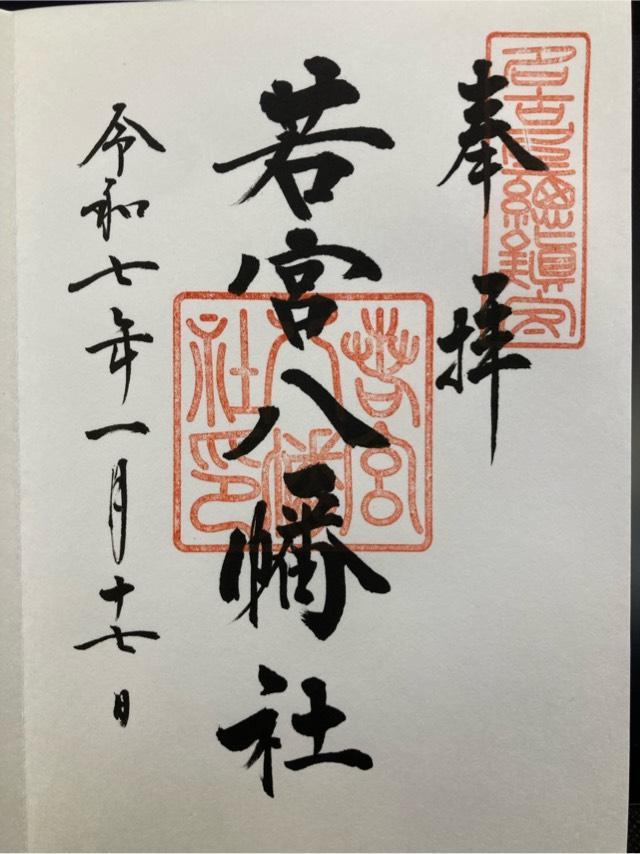 名古屋総鎮守
奉拝
若宮八幡社
若宮八幡社印
令和七年一月十七日